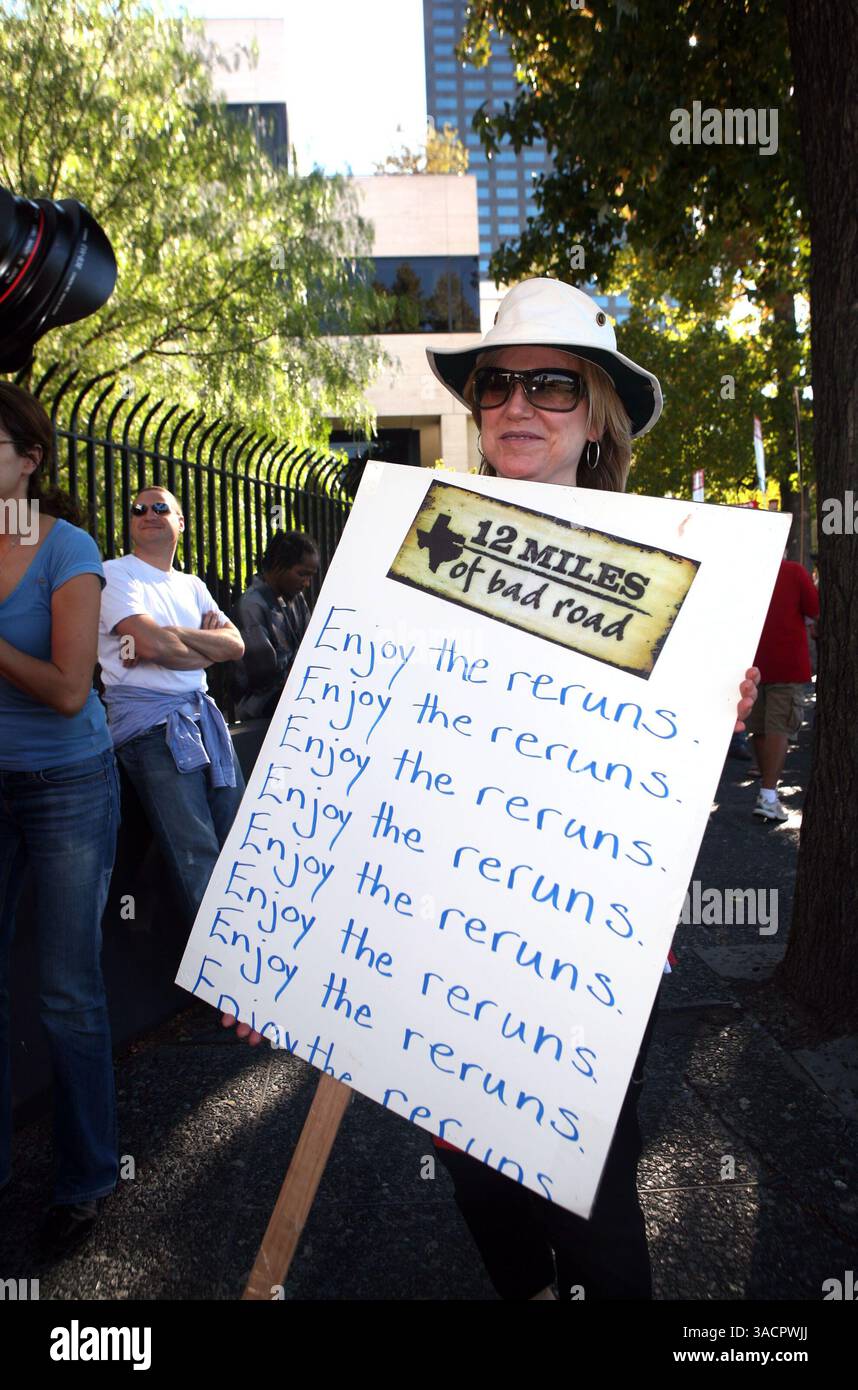 12 MILES
of bad road
Enjoy the reruns.
Enjoy the reruns.
Enjoy the reruns.
Enjoy the reruns.
Enjoy the reruns.
Enjoy the reruns.
Enjoy the reruns.
Enjoy the reruns
alamy
alamy
Image ID: 3ACPWJJ
www.alamy.com